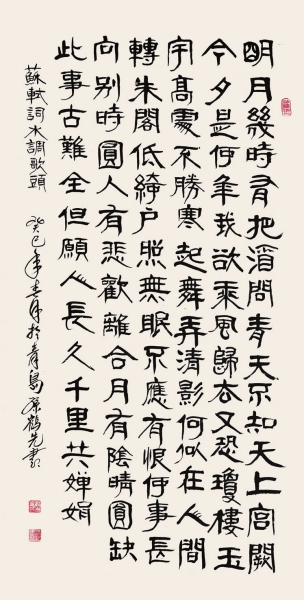 明月幾時有把酒問青天不知天上宮闕
今夕是何年我欲乘風歸去又恐瓊樓玉
宇高處不勝寒起舞弄清影何似在人間
轉朱閣低綺戶照無眠不應有恨何事長
向別時圓人有悲歡離合月有陰晴圓缺
此事古難全但願人長久千里共嬋娟
蘇軾詞水調歌頭 癸巳年春月於青島鶴先書